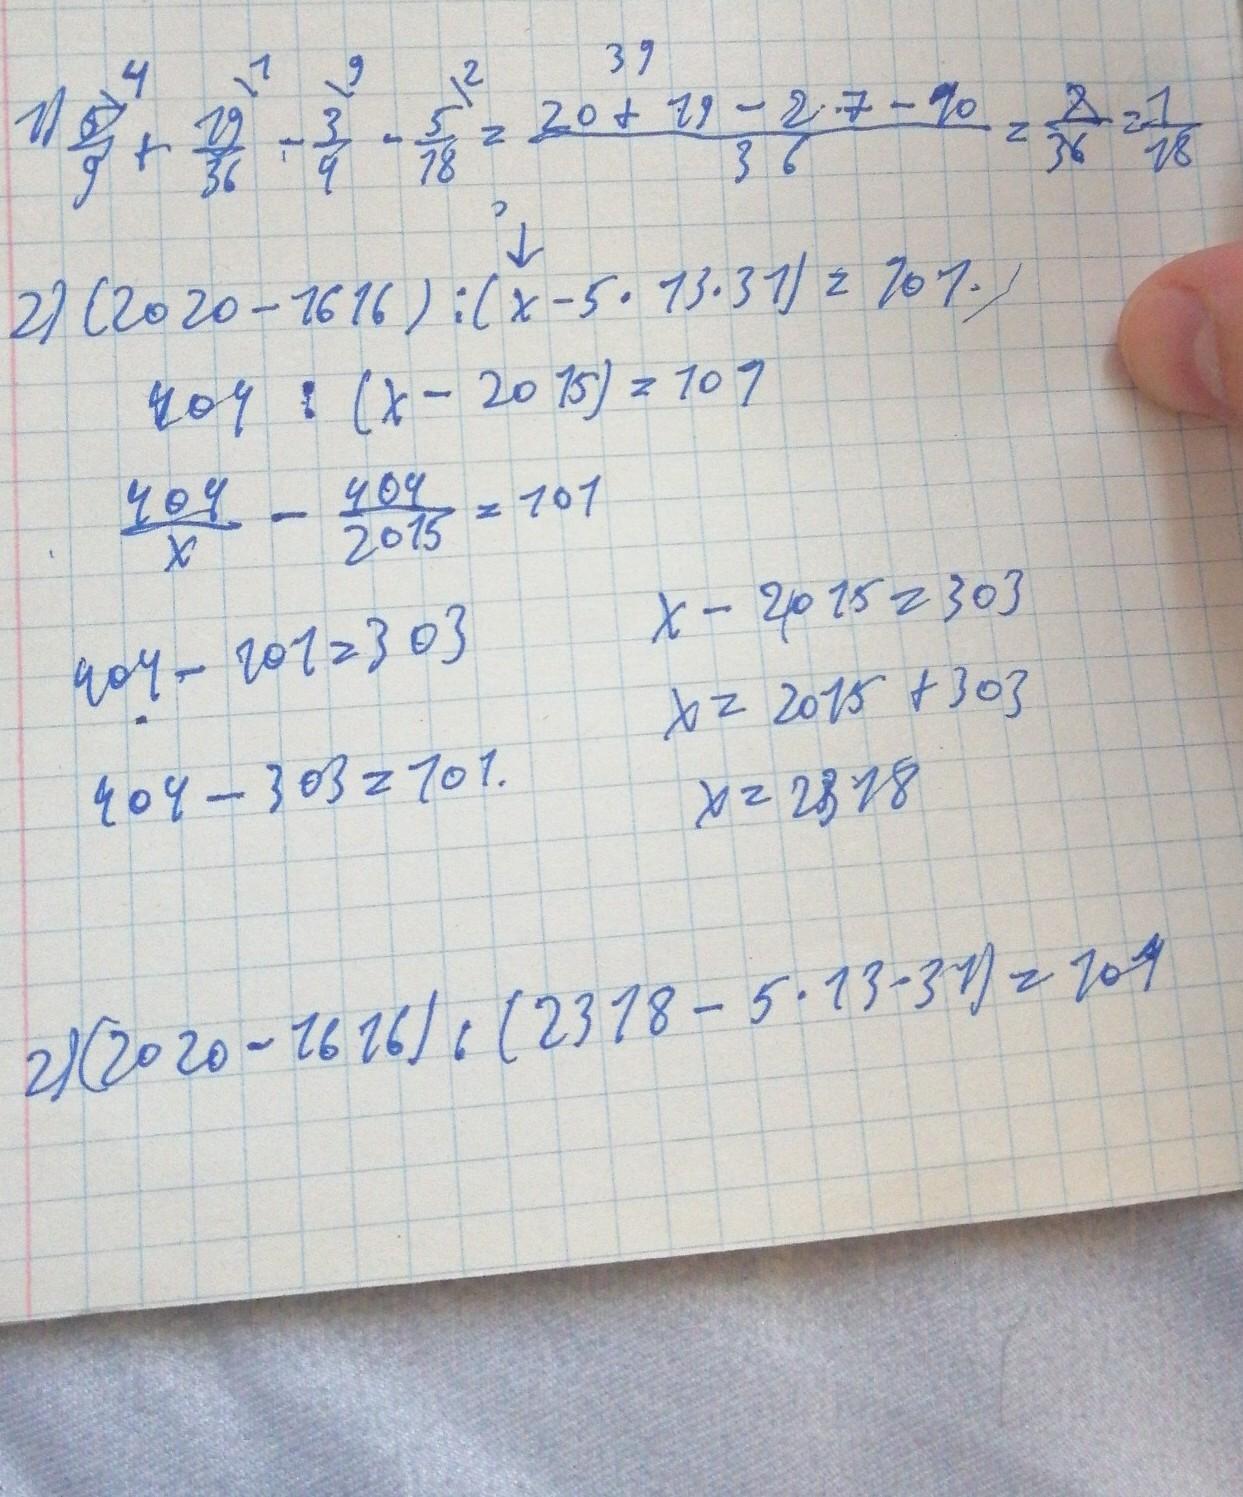 39
1) 5/9 \4 + 19/36 \1 - 3/4 \9 - 5/18 \2 = (20 + 19 - 27 - 10)/36 = 2/36 = 1/18
2) (2020 - 1616) : (x - 5 · 13 · 31) = 101.
404 : (x - 2015) = 101
404/x - 404/2015 = 101
404 - 101 = 303
x - 2015 = 303
x = 2015 + 303
404 - 303 = 101.
x = 2318
2) (2020 - 1616) : (2318 - 5 · 13 · 31) = 101